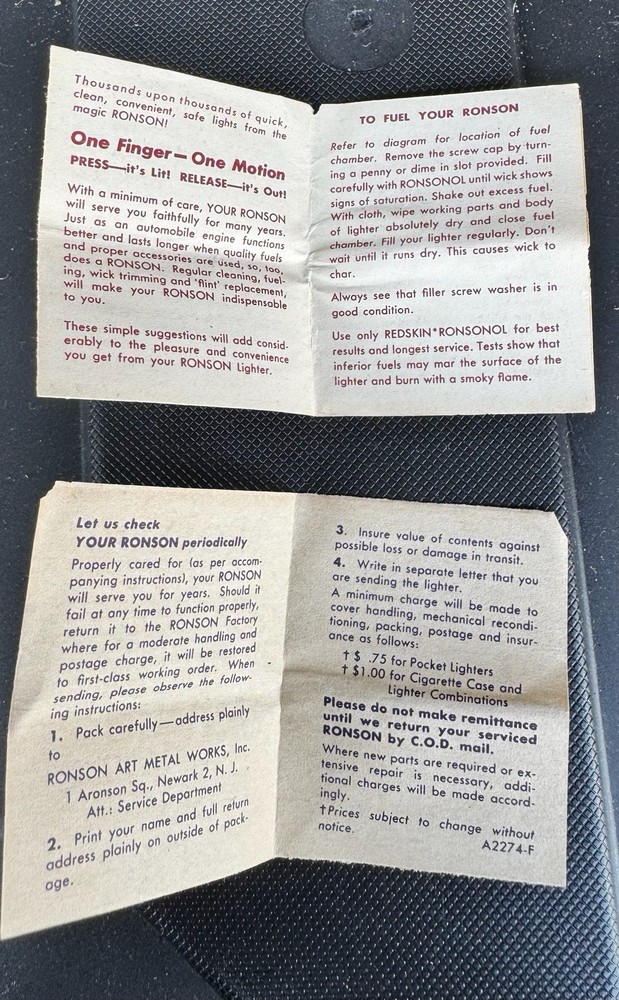 Thousands upon thousands of quick,
clean, convenient, safe lights from the
magic RONSON!
One Finger—One Motion
PRESS—it's Lit! RELEASE—it's Out!
With a minimum of care, YOUR RONSON
will serve you faithfully for many years.
Just as an automobile engine functions
better and lasts longer when quality fuels
and proper accessories are used, so, too,
does a RONSON. Regular cleaning, fuel-
ing, wick trimming and 'flint' replacement,
will make your RONSON indispensable
to you.
These simple suggestions will add consid-
erably to the pleasure and convenience
you get from your RONSON Lighter.
TO FUEL YOUR RONSON
Refer to diagram for location of fuel
chamber. Remove the screw cap by turn-
ing a penny or dime in slot provided. Fill
carefully with RONSONOL until wick shows
signs of saturation. Shake out excess fuel.
With cloth, wipe working parts and body
of lighter absolutely dry and close fuel
chamber. Fill your lighter regularly. Don't
wait until it runs dry. This causes wick to
char.
Always see that filler screw washer is in
good condition.
Use only REDSKIN*RONSONOL for best
results and longest service. Tests show that
inferior fuels may mar the surface of the
lighter and burn with a smoky flame.
Let us check
YOUR RONSON periodically
Properly cared for (as per accom-
panying instructions), your RONSON
will serve you for years. Should it
fail at any time to function properly,
return it to the RONSON Factory
where for a moderate handling and
postage charge, it will be restored
to first-class working order. When
sending, please observe the follow-
ing instructions:
1. Pack carefully—address plainly
to
RONSON ART METAL WORKS, Inc.
1 Aronson Sq., Newark 2, N. J.
Att.: Service Department
2. Print your name and full return
address plainly on outside of pack-
age.
3. Insure value of contents against
possible loss or damage in transit.
4. Write in separate letter that you
are sending the lighter.
A minimum charge will be made to
cover handling, mechanical recondi-
tioning, packing, postage and insur-
ance as follows:
†$ .75 for Pocket Lighters
†$1.00 for Cigarette Case and
Lighter Combinations
Please do not make remittance
until we return your serviced
RONSON by C.O.D. mail.
Where new parts are required or ex-
tensive repair is necessary, addi-
tional charges will be made accord-
ingly.
†Prices subject to change without
notice.
A2274-F